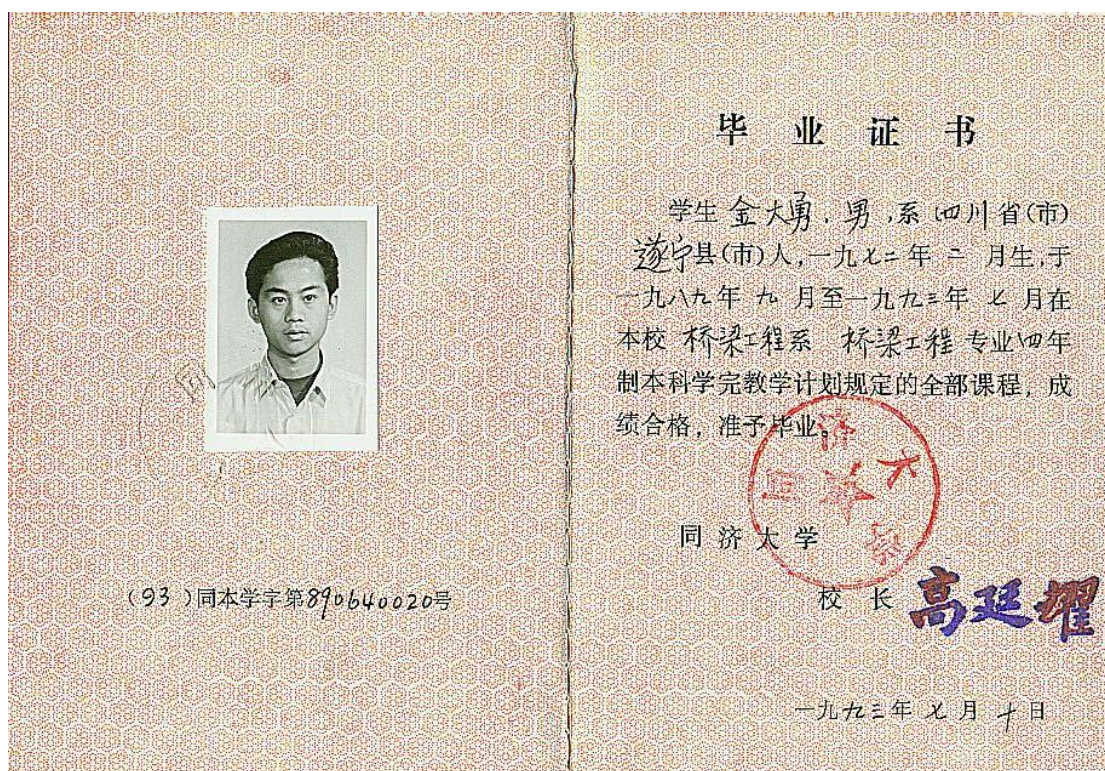 (93)同本学字第890640020号
毕业证书
学生 金大勇，男，系 四川 省(市)
遂宁县(市)人，一九七二年 二 月生，于
一九八九年 九 月至一九九三年 七 月在
本校 桥梁工程系 桥梁工程 专业四年
制本科学完教学计划规定的全部课程，成
绩合格，准予毕业。
同济大学
校长 高廷耀
一九九三年 七 月 十 日